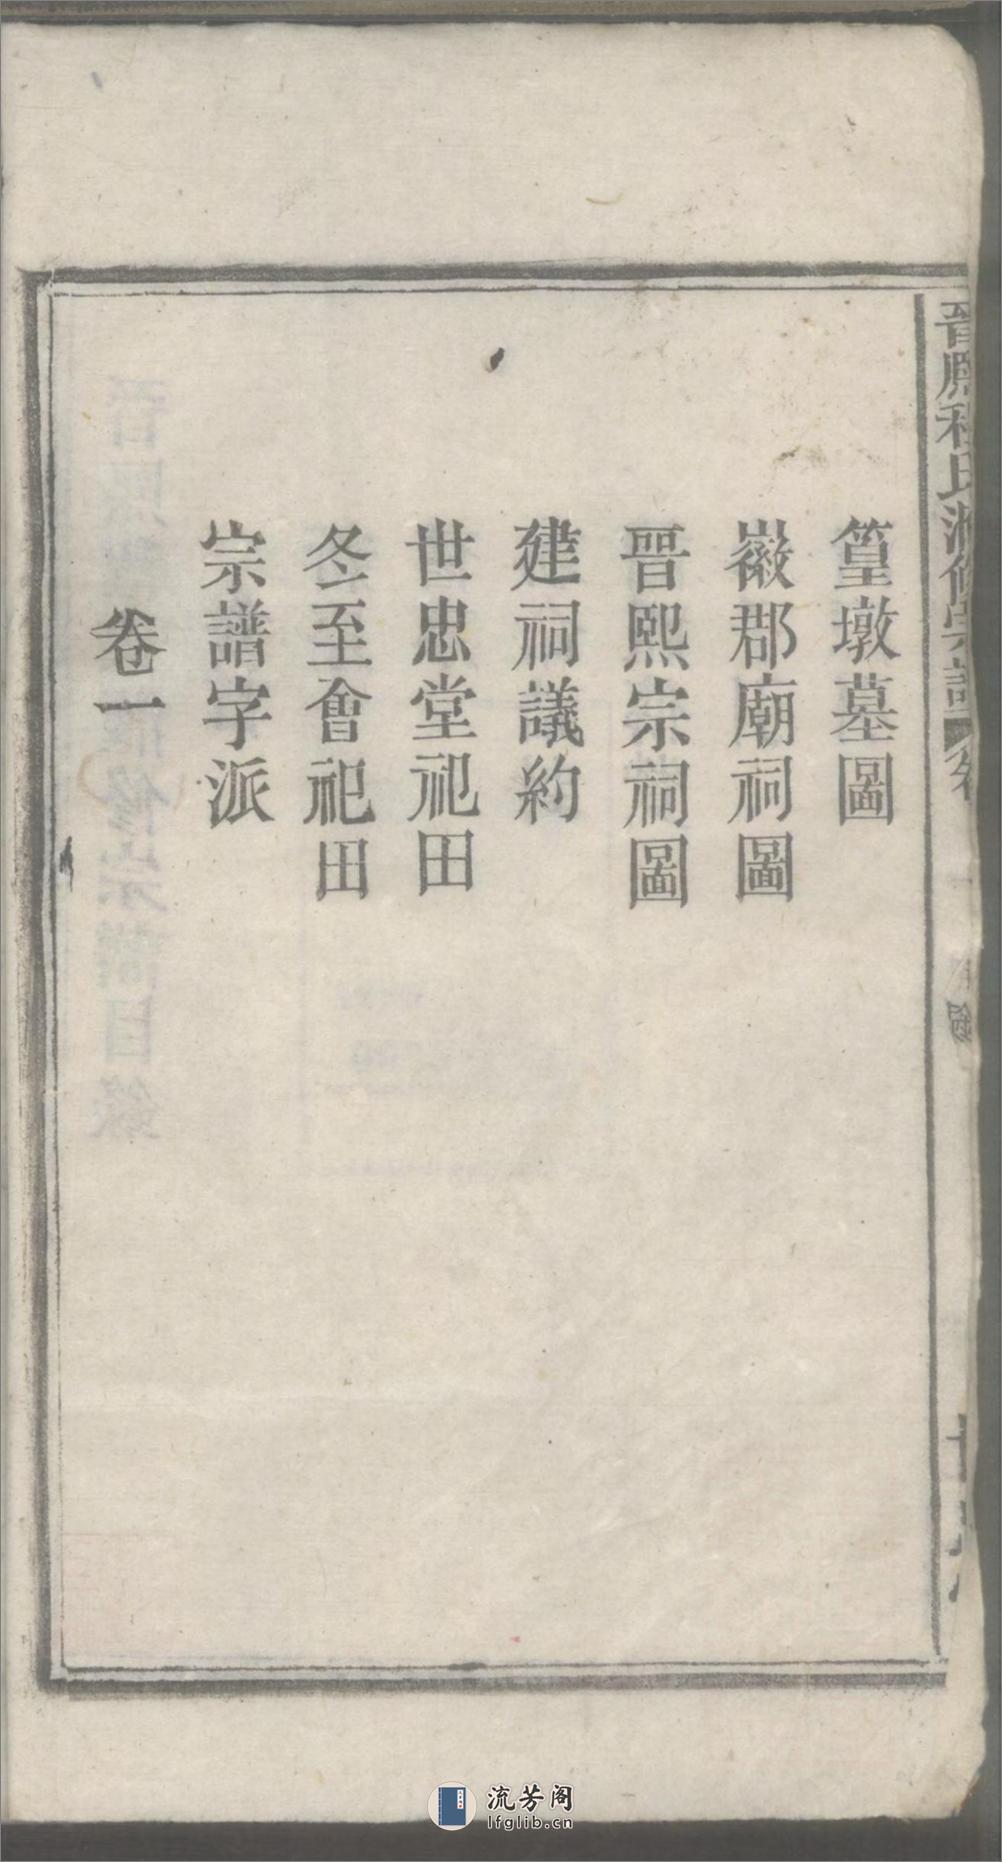 篁墩墓圖
徽郡廟祠圖
晉熙宗祠圖
建祠議約
世忠堂祀田
冬至會祀田
宗譜字派
卷一
晉熙程氏修宗譜
流芳阁
lfglib.cn